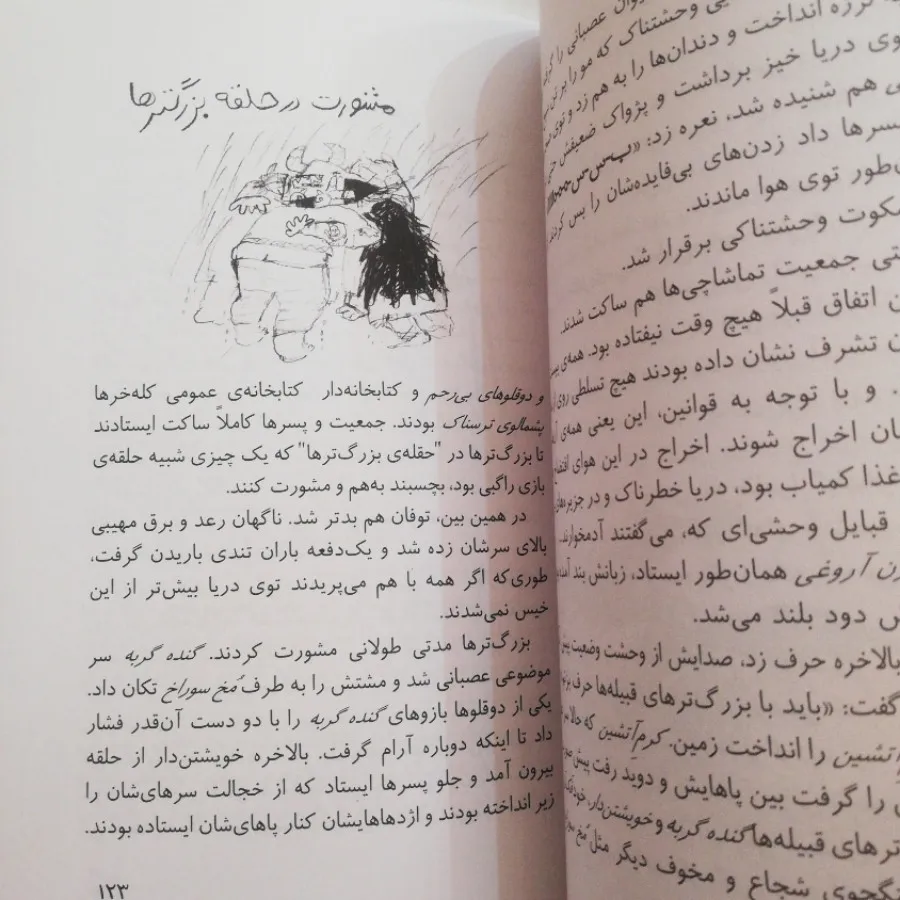 لرزه انداخت و دندان‌ها را به هم زد و توی
وی دریا خیز برداشت و پژواک ضعیفش
ی هم شنیده شد، نعره زد:
سرها داد زدن‌های بی‌فایده‌شان را بس کردند
‌طور توی هوا ماندند.
کوت وحشتناکی برقرار شد.
تی جمعیت تماشاچی‌ها هم ساکت شدند
اتفاق قبلاً هیچ وقت نیفتاده بود. همه‌ی
ن تشرف نشان داده بودند هیچ تسلطی روی
. و با توجه به قوانین، این یعنی همه‌ی
ان اخراج شوند. اخراج در این هوای
غذا کمیاب بود، دریا خطرناک و در جزیره‌های
قبایل وحشی‌ای که، می‌گفتند آدمخوارند..
ن آروغی همان‌طور ایستاد، زبانش بند
س دود بلند می‌شد.
بالاخره حرف زد، صدایش از وحشت وضعیت
گفت: «باید با بزرگ‌ترهای قبیله‌ها حرف
آتشین را انداخت زمین. کرم‌آتشین که حالا
را گرفت بین پاهایش و دوید رفت پیش
ترهای قبیله‌ها گنده گربه و خویشتن‌دار،
نگجوی شجاع و مخوف دیگر مثل مخ
مشورت در حلقه بزرگترها
و دوقلوهای بی‌رحم و کتابخانه‌دار کتابخانه‌ی عمومی کله‌خرها
پشمالوی ترسناک بودند. جمعیت و پسرها کاملاً ساکت ایستادند
تا بزرگ‌ترها در "حقله‌ی بزرگ‌ترها" که یک چیزی شبیه حلقه‌ی
بازی راگبی بود، بچسبند به‌هم و مشورت کنند.
در همین بین، توفان هم بدتر شد. ناگهان رعد و برق مهیبی
بالای سرشان زده شد و یک‌دفعه باران تندی باریدن گرفت،
طوری‌که اگر همه با هم می‌پریدند توی دریا بیش‌تر از این
خیس نمی‌شدند.
بزرگ‌ترها مدتی طولانی مشورت کردند. گنده گربه سر
موضوعی عصبانی شد و مشتش را به طرف مُخ سوراخ تکان داد.
یکی از دوقلوها بازوهای گنده گربه را با دو دست آن‌قدر فشار
داد تا اینکه دوباره آرام گرفت. بالاخره خویشتن‌دار از حلقه
بیرون آمد و جلو پسرها ایستاد که از خجالت سرهای‌شان را
زیر انداخته بودند و اژدهاهایشان کنار پاهای‌شان ایستاده بودند.
۱۲۳